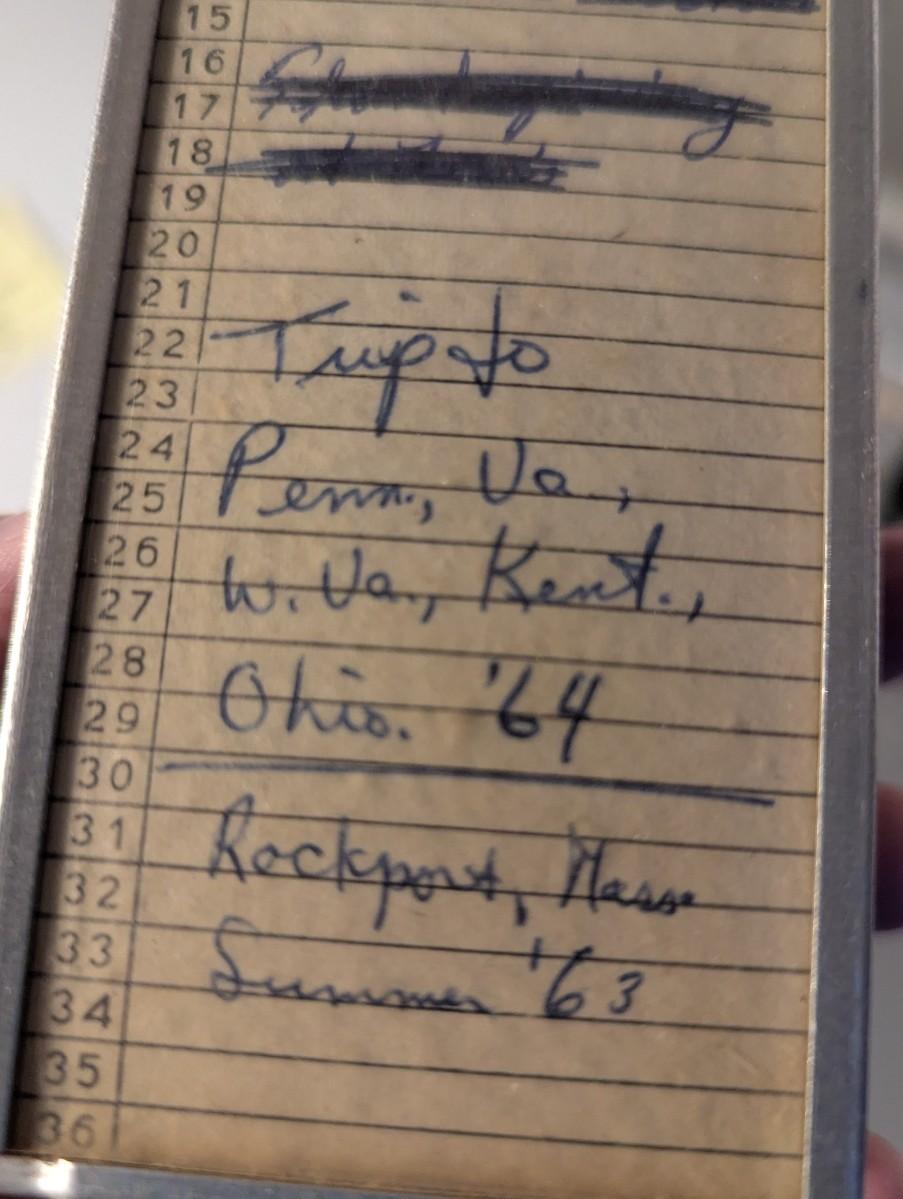 15
16
17
18
19
20
21
22 Trip to
23
24
25 Penn., Va.,
26
27 W. Va., Kent.,
28
29 Ohio. '64
30
31
32 Rockport, Mass
33
34 Summer '63
35
36